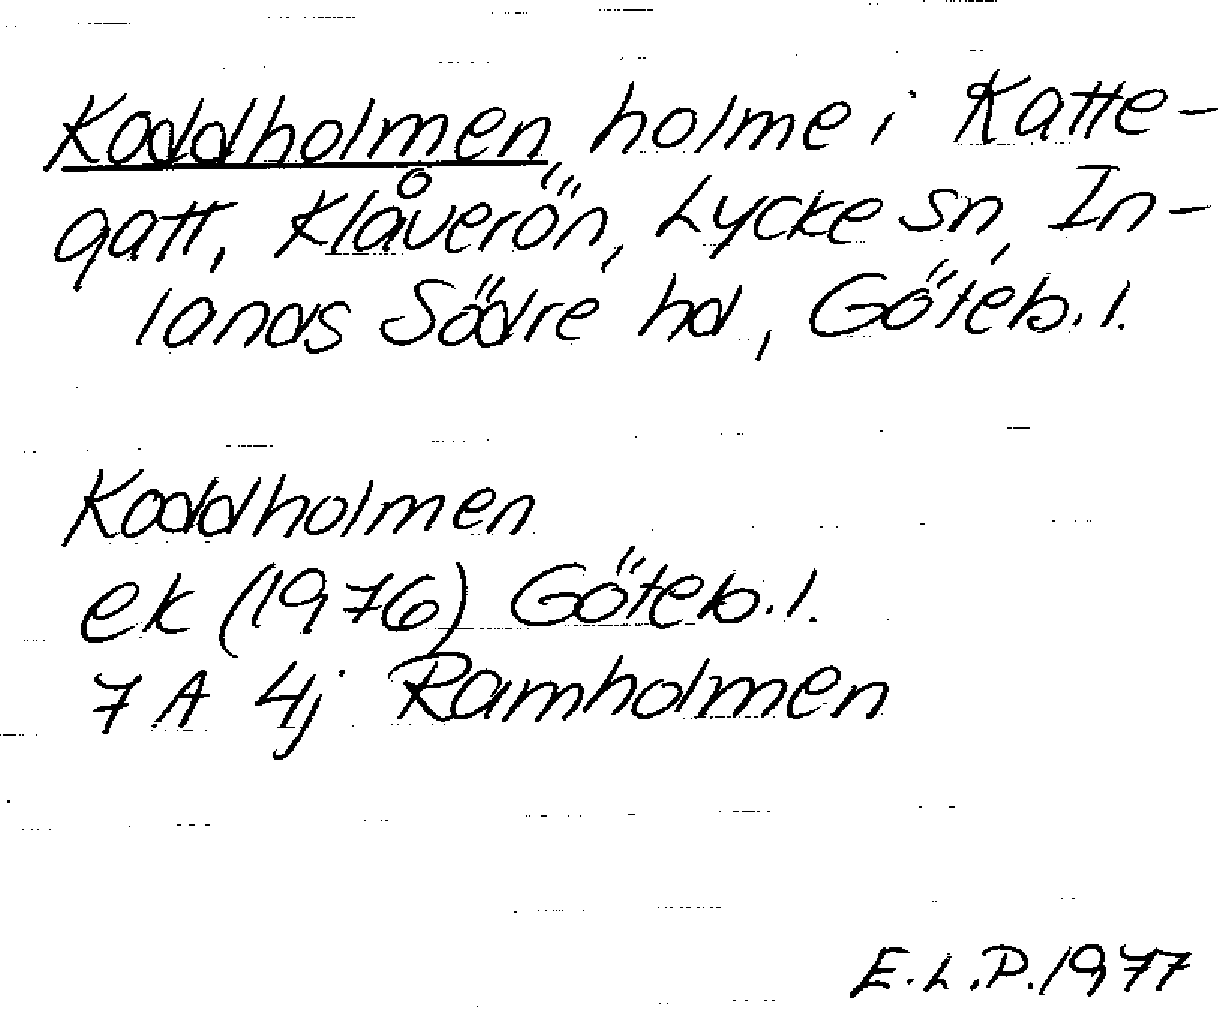 Koddholmen, holme i Katte-
gatt, Klåverön, Lycke sn, In-
lands Södre hd, Göteb.l.
Koddholmen
ek (1976) Göteb.l.
7 A 4j Ramholmen
E.L.P. 1977